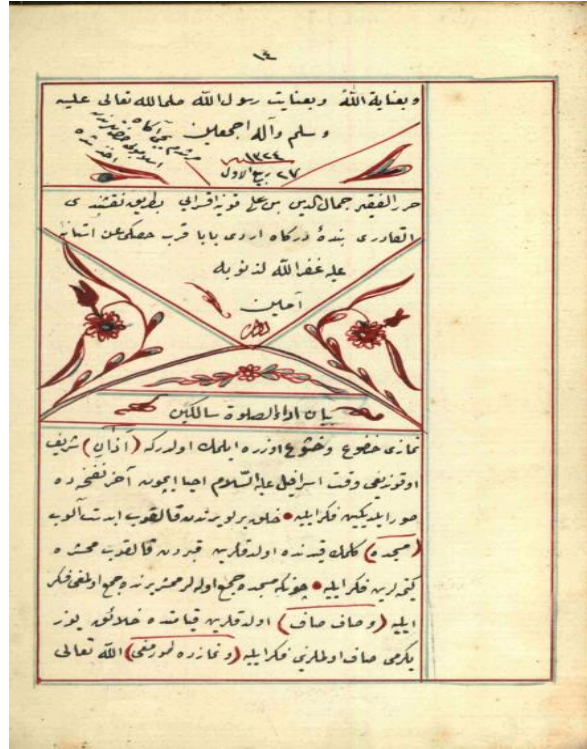 ١٤
وبعناية الله وبعنايت رسول الله صلى الله تعالى عليه
وسلم وآله اجمعين
١٣٢٤
٢٧ ربيع الاول
حرر الفقير جمال الدين بن على قونيه اقسرايى بطريق نقشبندى
القادرى بندۀ دركاه اردى بابا قرب
عليه غفر الله لذنوبه
آمين
بيان اداء الصلوة سالكين
نمازى خضوع وخشوع اوزره ايلمك اولدركه (آذان) شريف
اوقوندغى وقت اسرافيل عليه السلام احيا ايچون آخر نفخه ده
صور ايلديكين فكر ايليه • خلق برلو يرندن قالقوب ابدست آلوب
(مسجده) كلمك قيدنده اولدقلرين قبردن قالقوب محشره
كيتمه لرين فكر ايليه • چونكه مسجده جمع اوله لر محشر يرنده جمع اولمغى فكر
ايليه (وصاف صاف) اولدقلرين قيامتده خلائق يوز
يكرمى صاف اولملرينى فكر ايليه (ونمازه طورمغى) الله تعالى